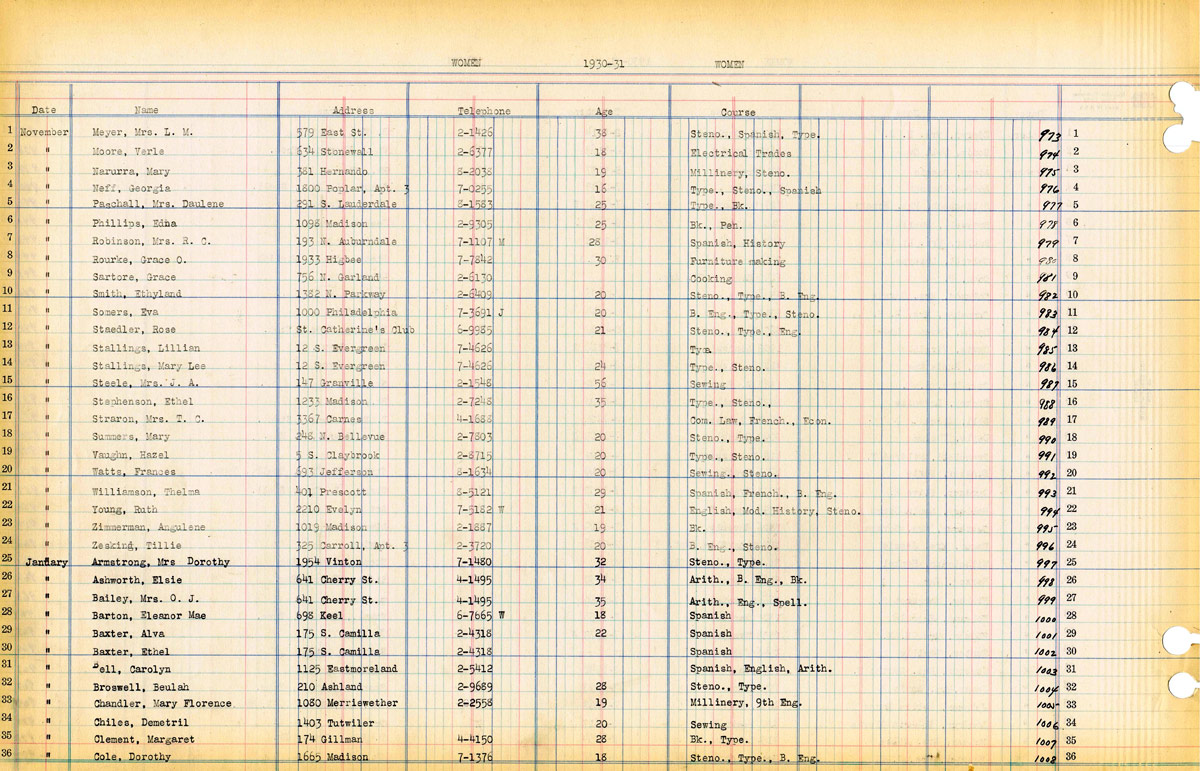 WOMEN 1930-31 WOMEN
Date Name Address Telephone Age Course
1 November Meyer, Mrs. L. M. 579 East St. 2-1426 38 Steno., Spanish, Type. 973 1
2 " Moore, Verle 634 Stonewall 2-6377 18 Electrical Trades 974 2
3 " Narurra, Mary 381 Hernando 8-2038 19 Millinery, Steno. 975 3
4 " Neff, Georgia 1800 Poplar, Apt. 3 7-0255 16 Type., Steno., Spanish 976 4
5 " Paschall, Mrs. Daulene 291 S. Lauderdale 8-1583 25 Type., Bk. 977 5
6 " Phillips, Edna 1098 Madison 2-9305 25 Bk., Pen. 978 6
7 " Robinson, Mrs. R. C. 193 N. Auburndale 7-1107 M 28 Spanish, History 979 7
8 " Rourke, Grace O. 1933 Higbee 7-7842 30 Furniture making 980 8
9 " Sartore, Grace 756 N. Garland 2-6130 Cooking 981 9
10 " Smith, Ethyland 1382 N. Parkway 2-6409 20 Steno., Type., B. Eng. 982 10
11 " Somers, Eva 1000 Philadelphia 7-3691 J 20 B. Eng., Type., Steno. 983 11
12 " Staedler, Rose St. Catherine's Club 6-9985 21 Steno., Type., Eng. 984 12
13 " Stallings, Lillian 12 S. Evergreen 7-4626 Type. 985 13
14 " Stallings, Mary Lee 12 S. Evergreen 7-4626 24 Type., Steno. 986 14
15 " Steele, Mrs. J. A. 147 Granville 2-1548 56 Sewing 987 15
16 " Stephenson, Ethel 1233 Madison 2-7248 35 Type., Steno., 988 16
17 " Straron, Mrs. T. C. 3367 Carnes 4-1688 Com. Law, French., Econ. 989 17
18 " Summers, Mary 248 N. Bellevue 2-7803 20 Steno., Type. 990 18
19 " Vaughn, Hazel 5 S. Claybrook 2-8715 20 Type., Steno. 991 19
20 " Watts, Frances 693 Jefferson 8-1634 20 Sewing., Steno. 992 20
21 " Williamson, Thelma 401 Prescott 8-5121 29 Spanish, French., B. Eng. 993 21
22 " Young, Ruth 2210 Evelyn 7-5182 W 21 English, Mod. History, Steno. 994 22
23 " Zimmerman, Angulene 1019 Madison 2-1887 19 Bk. 995 23
24 " Zeskind, Tillie 325 Carroll, Apt. 3 2-3720 20 B. Eng., Steno. 996 24
25 January Armstrong, Mrs Dorothy 1954 Vinton 7-1480 32 Steno., Type. 997 25
26 " Ashworth, Elsie 641 Cherry St. 4-1495 34 Arith., B. Eng., Bk. 998 26
27 " Bailey, Mrs. O. J. 641 Cherry St. 4-1495 35 Arith., Eng., Spell. 999 27
28 " Barton, Eleanor Mae 698 Keel 6-7665 W 18 Spanish 1000 28
29 " Baxter, Alva 175 S. Camilla 2-4318 22 Spanish 1001 29
30 " Baxter, Ethel 175 S. Camilla 2-4318 Spanish 1002 30
31 " Bell, Carolyn 1125 Eastmoreland 2-5412 Spanish, English, Arith. 1003 31
32 " Broswell, Beulah 210 Ashland 2-9689 28 Steno., Type. 1004 32
33 " Chandler, Mary Florence 1080 Merriewether 2-2558 19 Millinery, 9th Eng. 1005 33
34 " Chiles, Demetril 1403 Tutwiler 20 Sewing 1006 34
35 " Clement, Margaret 174 Gillman 4-4150 28 Bk., Type. 1007 35
36 " Cole, Dorothy 1665 Madison 7-1376 18 Steno., Type., B. Eng. 1008 36